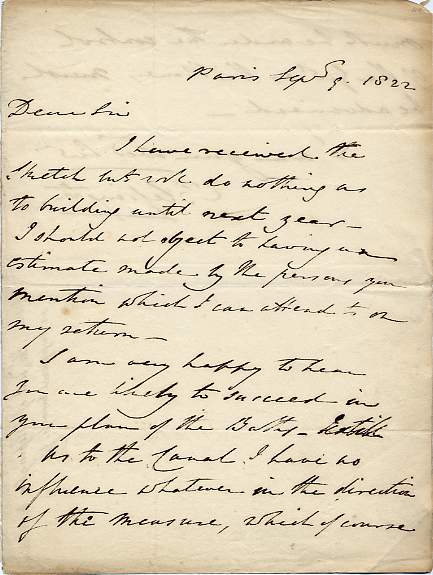 Paris Sepr 9. 1822
Dear Sir
I have received the
Sketch but shl do nothing as
to building until next year—
I should not object to having an
estimate made by the persons you
mention which I can attend to on
my return—
I am very happy to hear
you are likely to succeed in
your plan of the Baths—
As to the Canal I have no
influence whatever in the direction
of the measure, which of course